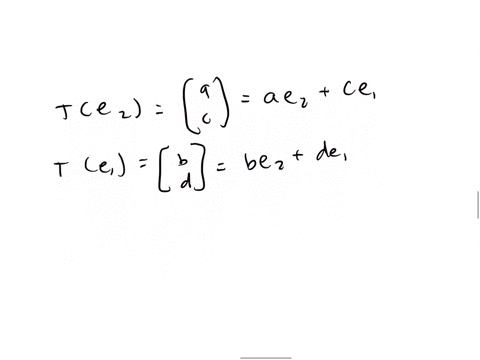 T(e₂) = [a c] = ae₂ + ce₁
T(e₁) = [b d] = be₂ + de₁